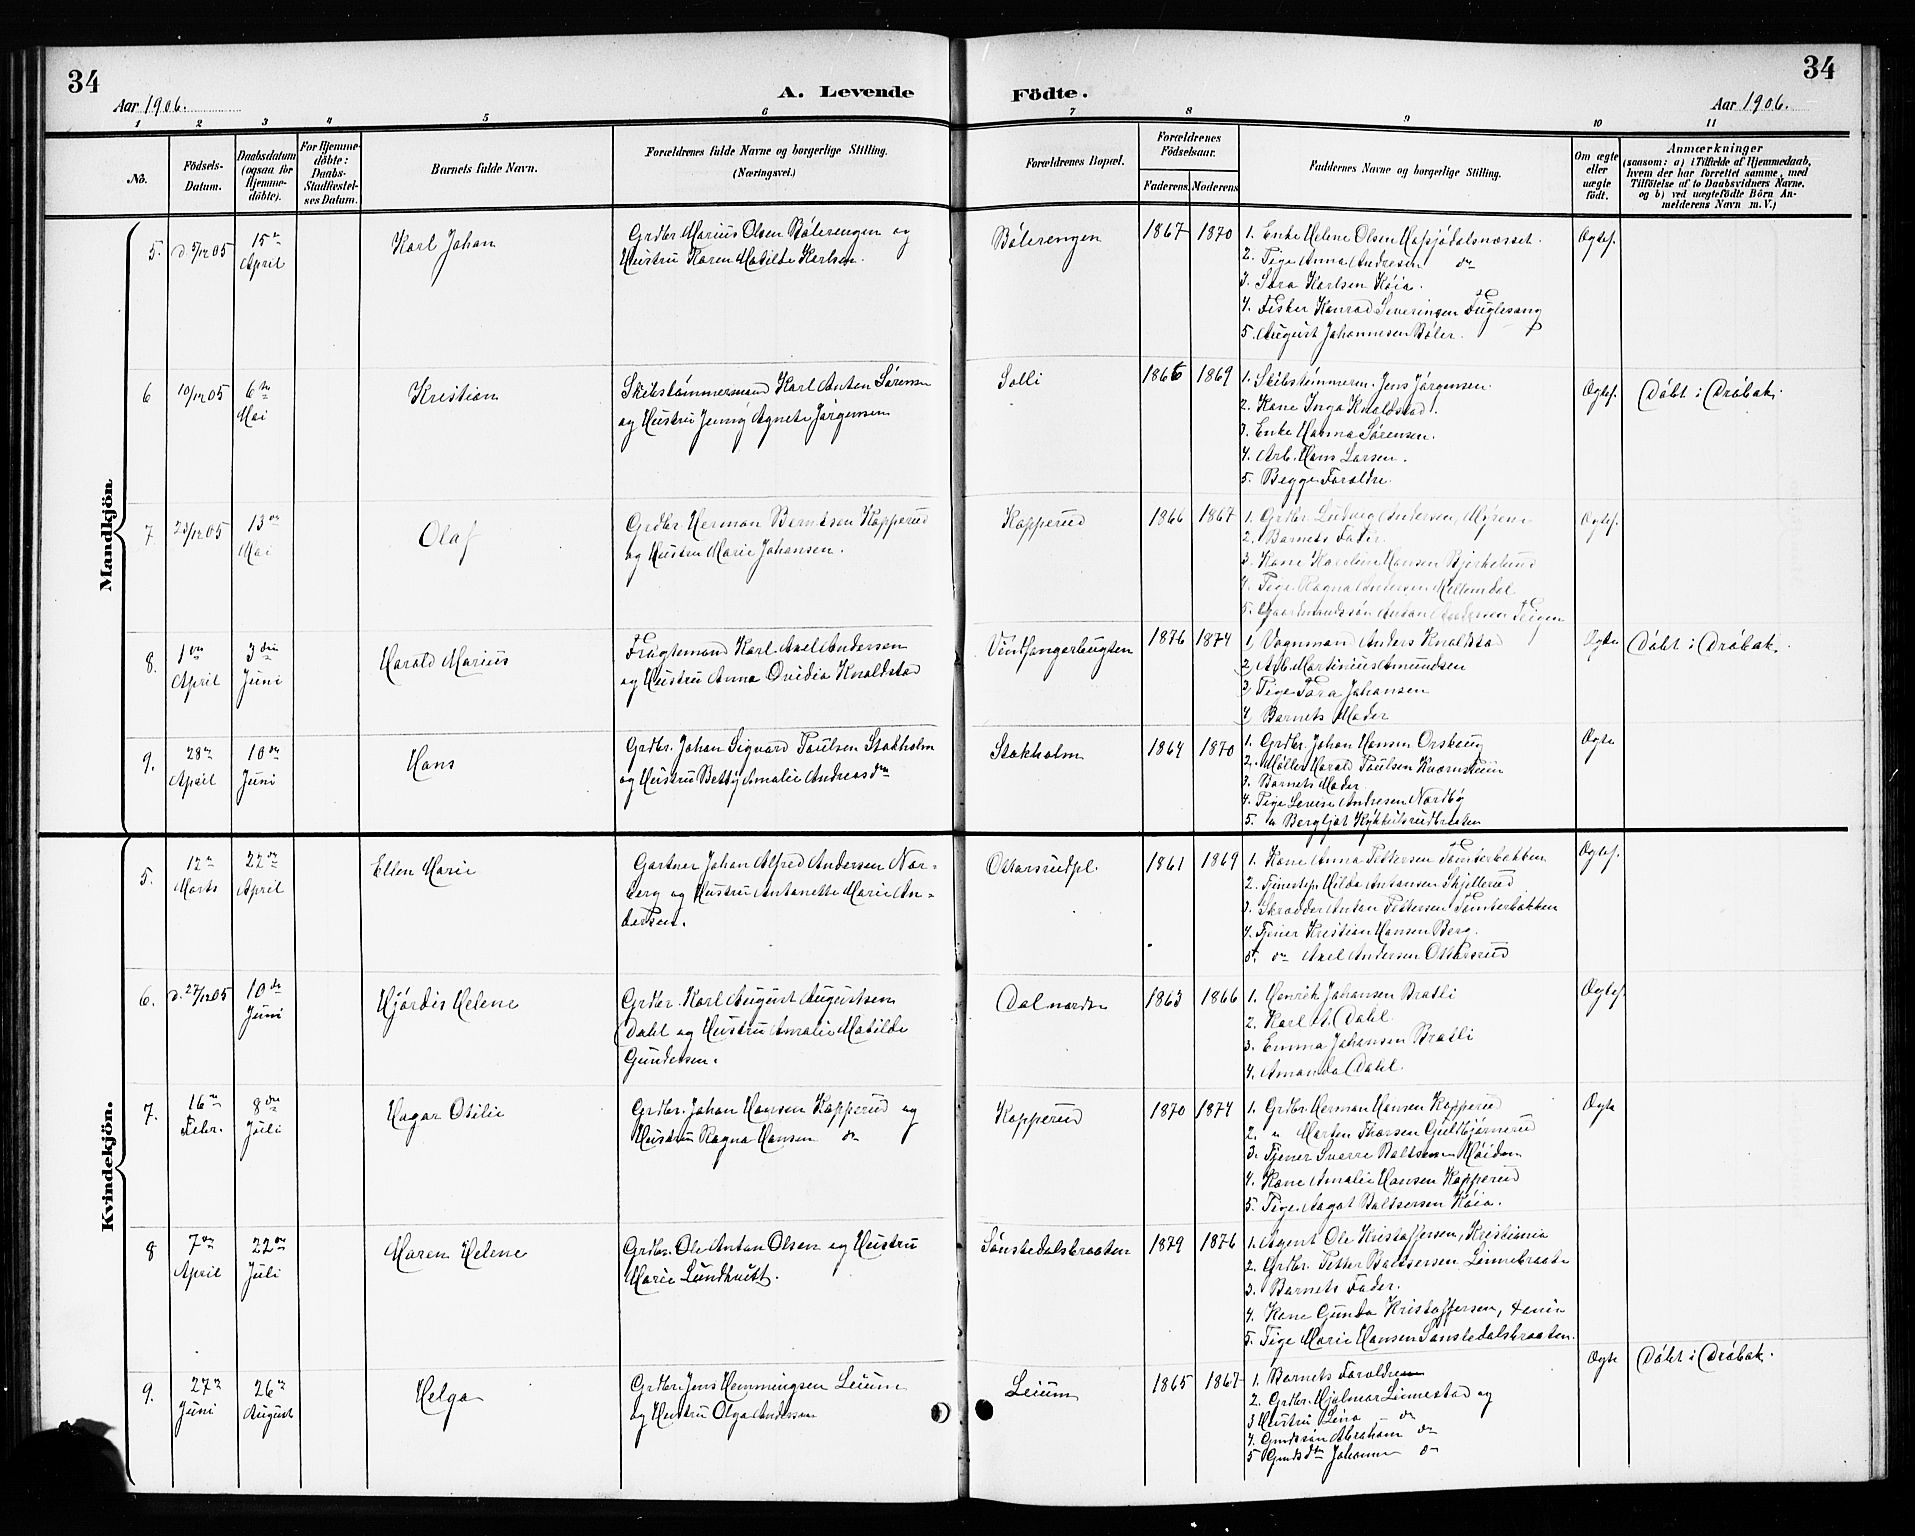 34
34
Aar 1906.
A. Levende
Födte.
Aar 1906.
1 2 3 4 5 6 7 8 9 10 11
No.
Födsels-Datum.
Daabsdatum (ogsaa for Hjemme-döbte).
For Hjemme-döbte: Daabs-Stadfæstel-ses Datum.
Barnets fulde Navn.
Forældrenes fulde Navne og borgerlige Stilling.
(Næringsvei.)
Forældrenes Bopæl.
Forældrenes Födselsaar.
Faderens. Moderens.
Faddernes Navne og borgerlige Stilling.
Om ægte eller uægte födt.
Anmærkninger
(saasom: a) i Tilfælde af Hjemmedaab,
hvem der har forrettet samme, med
Tilföielse af to Daabsvidners Navne,
og b) ved uægtefödte Börn An-
melderens Navn m. V.)
Mandkjön
5. d. 5/12 05 15de April Karl Johan
Grdbr. Marius Olsen Bölerengen og
Hustru Karen Matilde Karlsen.
Bölerengen 1867 1870
1. Enke Helene Olsen
2. Pige Anna Andresen do
3. Sara Karlsen Köia.
4. Fisker Konrad Severinsen Fuglesang
5. August Johannesen Böler.
Ægtef.
6 10/12 05 6te Mai Kristian
Skibstömmermand Karl Anton Sörensen
og Hustru Jenny Agnete Jörgensen
Solli 1866 1869
1. Skibstömmerm. Jens Jörgensen
2. Kone Inga Knoldstad.
3. Enke Hanna Sörensen.
4. Arb. Hans Larsen.
5. Begge Foraldre.
Ægtef. Döbt i Dröbak.
7 23/12 05 13de Mai Olaf
Grdbr. Herman Berntsen Kopperud
og Hustru Marie Johansen.
Kopperud 1866 1867
1. Grdbr. Ludvig Andersen, Myren
2. Barnets Fader.
3. Kone Karoline Hansen Bjerkelund
4. Pige Ragna Andersen Mellemdal
5. Gaardmandssön Anton Andersen Teigen
Ægtef.
8. 1ste April 3die Juni Harald Marius
Fragtemand Karl Axel Andersen
og Hustru Anna Ovidia Knoldstad
Vindfangerbugten 1876 1874
1, Vognmand Anders Knoldstad
2, Arb. Martinius Amundsen
3, Pige Tora Johansen
4, Barnets Moder
Ægte Döbt i Dröbak.
9. 28de April 10de Juni Hans
Grdbr. Johan Sigvard Paulsen Stokholm
og Hustru Betty Amalie Andreasdtr
Stokholm 1864 1870
1. Grdbr. Johan Hansen Orskoug
2. Möller Harald Paulsen
3. Barnets Moder
4. Pige Lovise Andresen Nordby
5. " Bergljot
Ægte
Kvindekjön.
5. 12te Marts 22de April Ellen Marie
Gartner Johan Alfred Andersen Nor-
berg og Hustru Antonette Marie An-
dersen.
Ottarsrudpl. 1861 1869
1. Kone Anna Pettersen Tomterbakken
2. Tjenestep. Hilda Antonsen Skjellerud
3. Skrædder Anton Pettersen Tomterbakken
4. Tjener Kristian Hansen Berg.
5. do Axel Andersen Ottarsrud
Ægtef.
6. d. 27/12 05 10de Juni Hjördis Helene
Grdbr. Karl August Augustsen
Dahl og Hustru Amalie Matilde
Gundersen.
Dal nordre 1863 1866
1. Henrik Johansen Bratli
2. Karl A. Dahl.
3. Emma Johansen Bratli
4. Amanda Dahl.
Ægtef.
7. 16de Febr. 8de Juli Hagar Otilie
Grdbr. Johan Hansen Kopperud og
Hustru Ragna Hansen do
Kopperud 1870 1874
1. Grdbr. Herman Hansen Kopperud
2. " Morten Thorsen Gulbjörnerud
3. Tjener Sverre Baltsersen
4. Kone Amalie Hansen Kopperud
5. Pige Aagot Baltsersen Köia.
Ægte
8 7de April 22de Juli Maren Helene
Grdbr. Ole Anton Olsen og Hustru
Marie Lundhvitt.
Sönstedalsbraaten 1879 1876
1. Agent Ole Kristoffersen, Kristiania
2. Grdbr. Petter Baltsersen Linnebraate
3. Barnets Fader.
4. Kone Gunda Kristoffersen,
5. Pige Marie Hansen Sönstedalsbraaten.
9. 27de Juni 26de August Helga
Grdbr. Jens Hemmingsen Leium
og Hustru Olga Andersen
Leium 1865 1867
1. Barnets Foraldre
2. Grdbr. Hjalmar Linnestad og
3 Hustru Lina — do
4. Gmdssön Abraham do
5 Gmdsdtr Johanne do
Ægte Döbt i Dröbak.